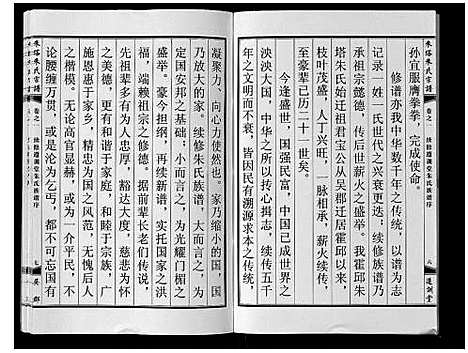 朱塔朱氏宗譜
卷之一 续修遵澗堂朱氏族谱序
六 遵澗堂
孙宜服膺拳拳，完成使命。
修谱亦我中华数千年之传统，以谱为志
记录一姓一氏世代之兴衰更迭；续修族谱，
承祖宗懿德，传后世薪火之盛举。我霍邱朱
塔朱氏始迁祖君宝公从吴郡迁居霍邱以来，
枝叶茂盛，人丁兴旺，一脉相承，薪火续传，
至豪辈已历二十一世矣。
今逢盛世，国强民富，中国已成世界之
泱泱大国，十几亿之众所以抟心揖志，续五千
年之文明而不衰，皆因民有溯源求本之传统，
凝聚力、向心力使然也。家乃缩小的国，国
乃放大的家。续修朱氏族谱，大而言之，为
定国安邦之基础；小而言之，为光耀门楣之
盛举。豪今担纲，再续新谱，实托国家之洪
福，端赖祖宗之修德。据前辈长老们传说：
先祖辈多有仁人君子，豁达大度，慈悲为怀，
施恩惠于家乡，精忠为国之风范，无愧后人
之美德，更有和谐于家庭，和睦于宗族，
之楷模。无论高官显赫，或为一介平民，不
论腰缠万贯，或是沦为乞丐，都不可忘国有
卷之一 续修遵澗堂朱氏族谱序
七 吴郡